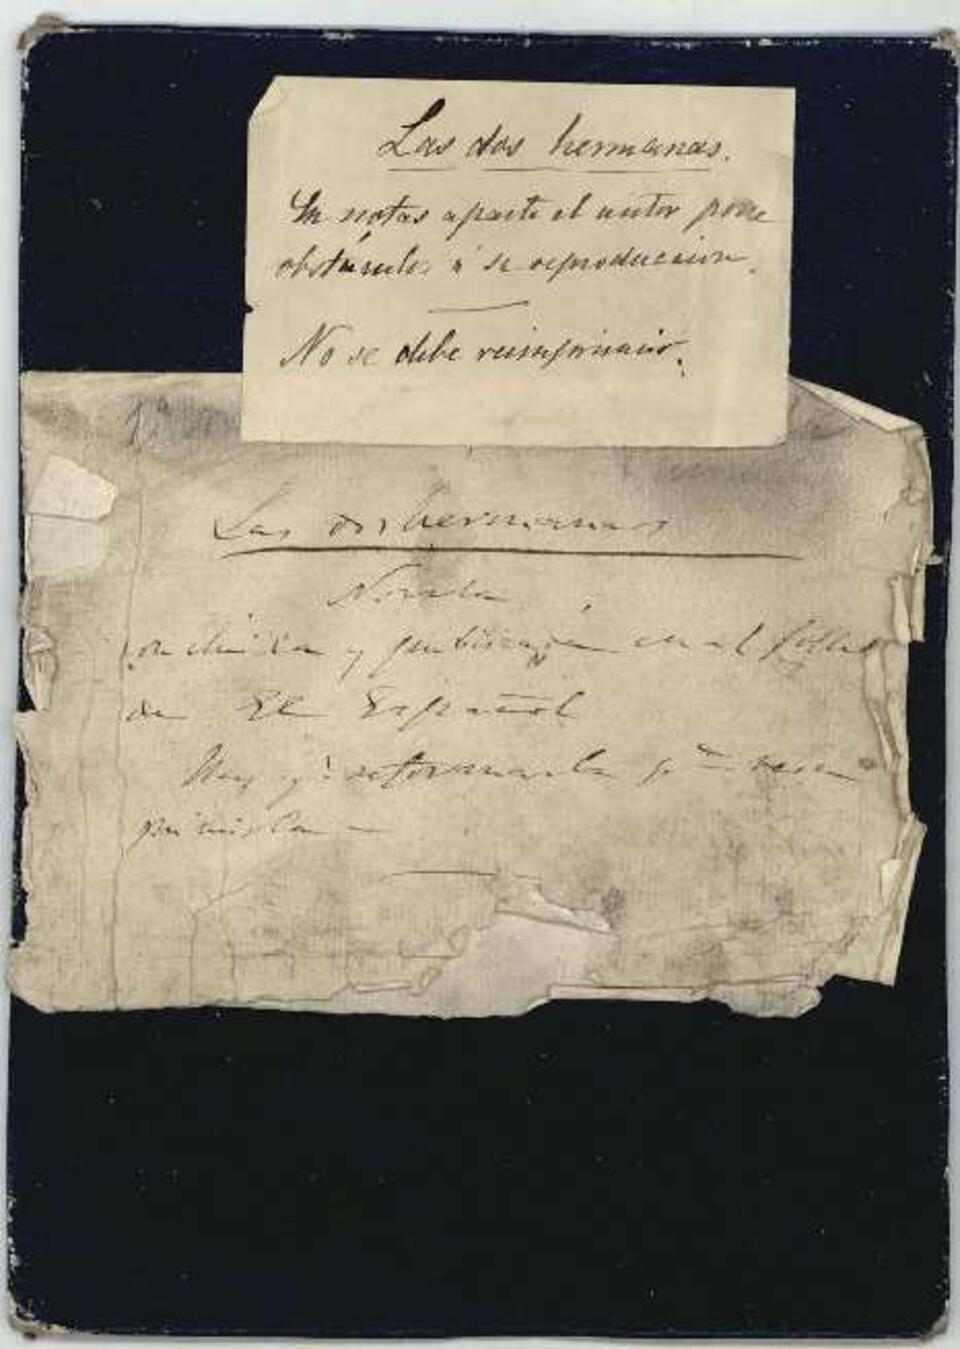 Las dos hermanas.
En notas aparte el autor pone
obstáculos á su reproduccion.
No se debe reimprimir.
Las dos hermanas
Novela
y publicada en el
de El Español
Hay q.e reformarla